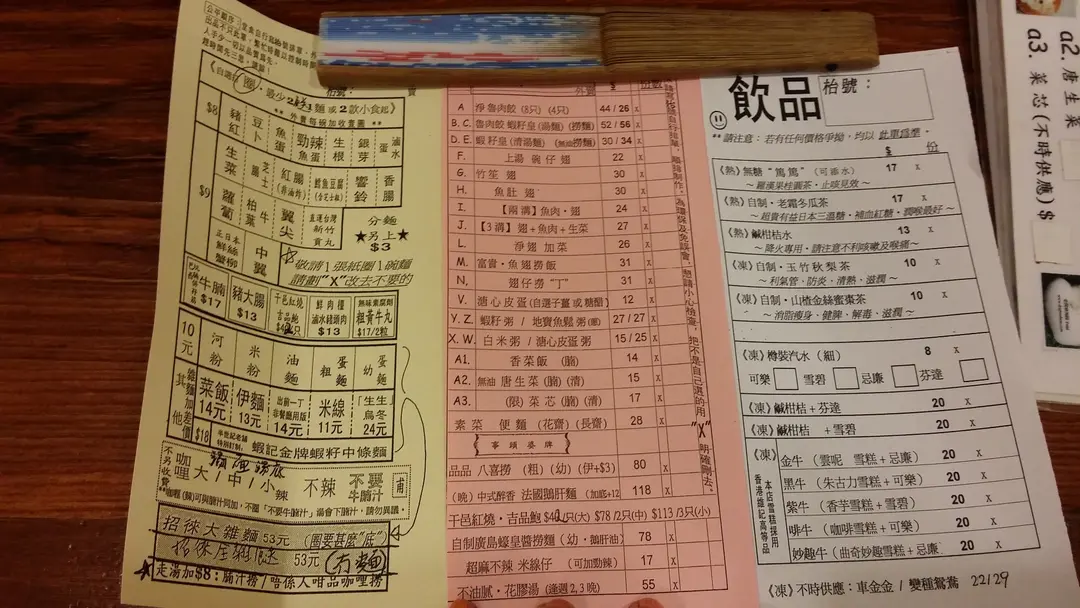 $8
豬紅
豆卜
魚蛋
勁辣魚蛋
生根
銀芽
滷水蛋
$9
生菜
芝士
紅腸
響鈴
香腸
蘿蔔
柏葉
翼尖
直運台灣新竹貢丸
分麵
★另上★
$3
正日本鮮絲蟹柳
中翼
敬請1張紙圈1碗麵
請劃"X"改去不要的
牛腩
$17
豬大腸
$13
鮮肉檔滷水豬頭肉
$13
粗黃牛丸
$17/2粒
10元
河粉
米粉
油麵
蛋粗麵
蛋幼麵
菜飯
14元
伊麵
13元
出前一丁
14元
米線
11元
「生生」烏冬
24元
$18
蝦記金牌蝦籽中條麵
咖哩
大/中/小辣
不辣
不要牛腩汁
招徠大雜麵 53元 (圈要甚麼"底")
53元
走湯加$8:腩汁撈/唔係人咁品咖哩撈
$
A 淨魚肉餃 (8只) (4只) 44 / 26 x
B. C. 魯肉餃 蝦籽皇 (湯麵) (撈麵) 52 / 56 x
D. E. 蝦籽皇 (清湯麵) (無油撈麵) 30 / 34 x
F. 上湯 碗仔翅 22 x
G. 竹笙 翅 30 x
H. 魚肚 翅 30 x
I. 【兩溝】魚肉・翅 24 x
J. 【3溝】翅+魚肉+生菜 27 x
L. 淨翅 加菜 26 x
M. 富貴・魚翅撈飯 31 x
N. 翅仔撈"丁" 31 x
V. 溏心皮蛋 (自選子薑 或 糖醋) 12 x
Y. Z. 蝦籽粥 / 地寶魚鬆粥 27 / 27 x
X. W. 白米粥 / 溏心皮蛋粥 15 / 25 x
A1. 香菜飯 (腩) 14 x
A2. 無油 唐生菜 (腩) (清) 15 x
A3. (限) 菜芯 (腩) (清) 17 x
素菜 便麵 (花齋) (長齋) 28 x
【事頭婆牌】
品品 八喜撈 (粗) (幼) (伊+$3) 80 x
(晚) 中式醉香 法國鵝肝麵 (加底+12 118 x
干邑紅燒・吉品鮑 /只(大) $78 /2只(中) $113 /3只(小)
自制廣島蠔皇醬撈麵 (幼・鵝肝油) 78 x
超麻不辣 米線仔 (可加勁辣) 17 x
不油膩・花膠湯 (逢週2,3晚) 55 x
飲品
枱號:
**請注意:若有任何價格爭拗,均以 此單為準.
$ 份
《熱》無糖"篤篤" (可添水) 17 x
~羅漢果桂圓茶・止咳見效~
《熱》自制・老霜冬瓜茶 17 x
~超貴有益日本三溫糖・補血紅糖・潤喉最好~
《熱》鹹柑桔水 13 x
~降火專用・請注意不利咳嗽及喉痛~
《凍》自制・玉竹秋梨茶 10 x
~利氣管・防炎・清熱・滋潤~
《凍》自制・山楂金絲蜜棗茶 10 x
~消脂瘦身・健脾・解毒・滋潤~
《凍》樽裝汽水 (細) 8 x
可樂 雪碧 忌廉 芬達
《凍》鹹柑桔 + 芬達 20 x
《凍》鹹柑桔 + 雪碧 20 x
《凍》
本店雪糕採用香港維記高等品
金牛 (雲呢 雪糕+忌廉) 20 x
黑牛 (朱古力雪糕+可樂) 20 x
紫牛 (香芋雪糕+雪碧) 20 x
啡牛 (咖啡雪糕+可樂) 20 x
妙趣牛 (曲奇妙趣雪糕+忌廉) 20 x
《凍》不時供應:車金金 / 變種鴛鴦 22/29
a2. 唐生菜
a3. 菜芯(不時供應) $